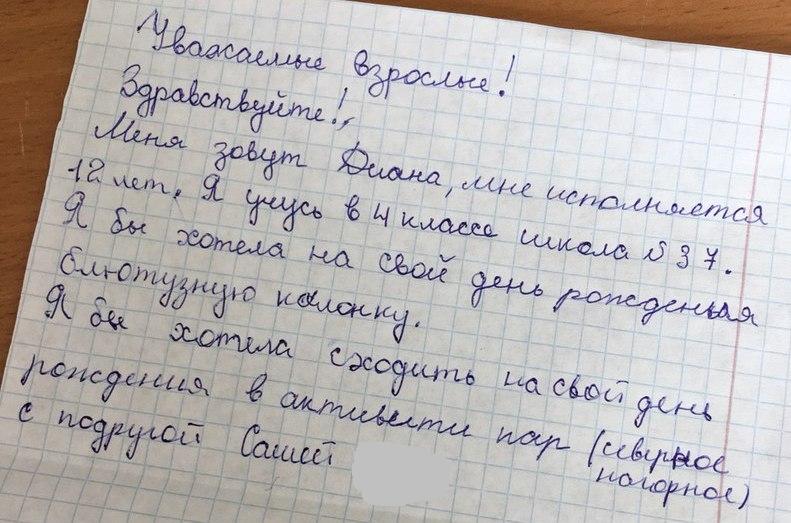 Уважаемые взрослые!
Здравствуйте!,
Меня зовут Диана, мне исполняется
12 лет. Я учусь в 4 классе школа №37.
Я бы хотела на свой день рожденья
блютузную колонку.
Я бы хотела сходить на свой день
рождения в активити пар (северное
нагорное)
с подругой Сашей